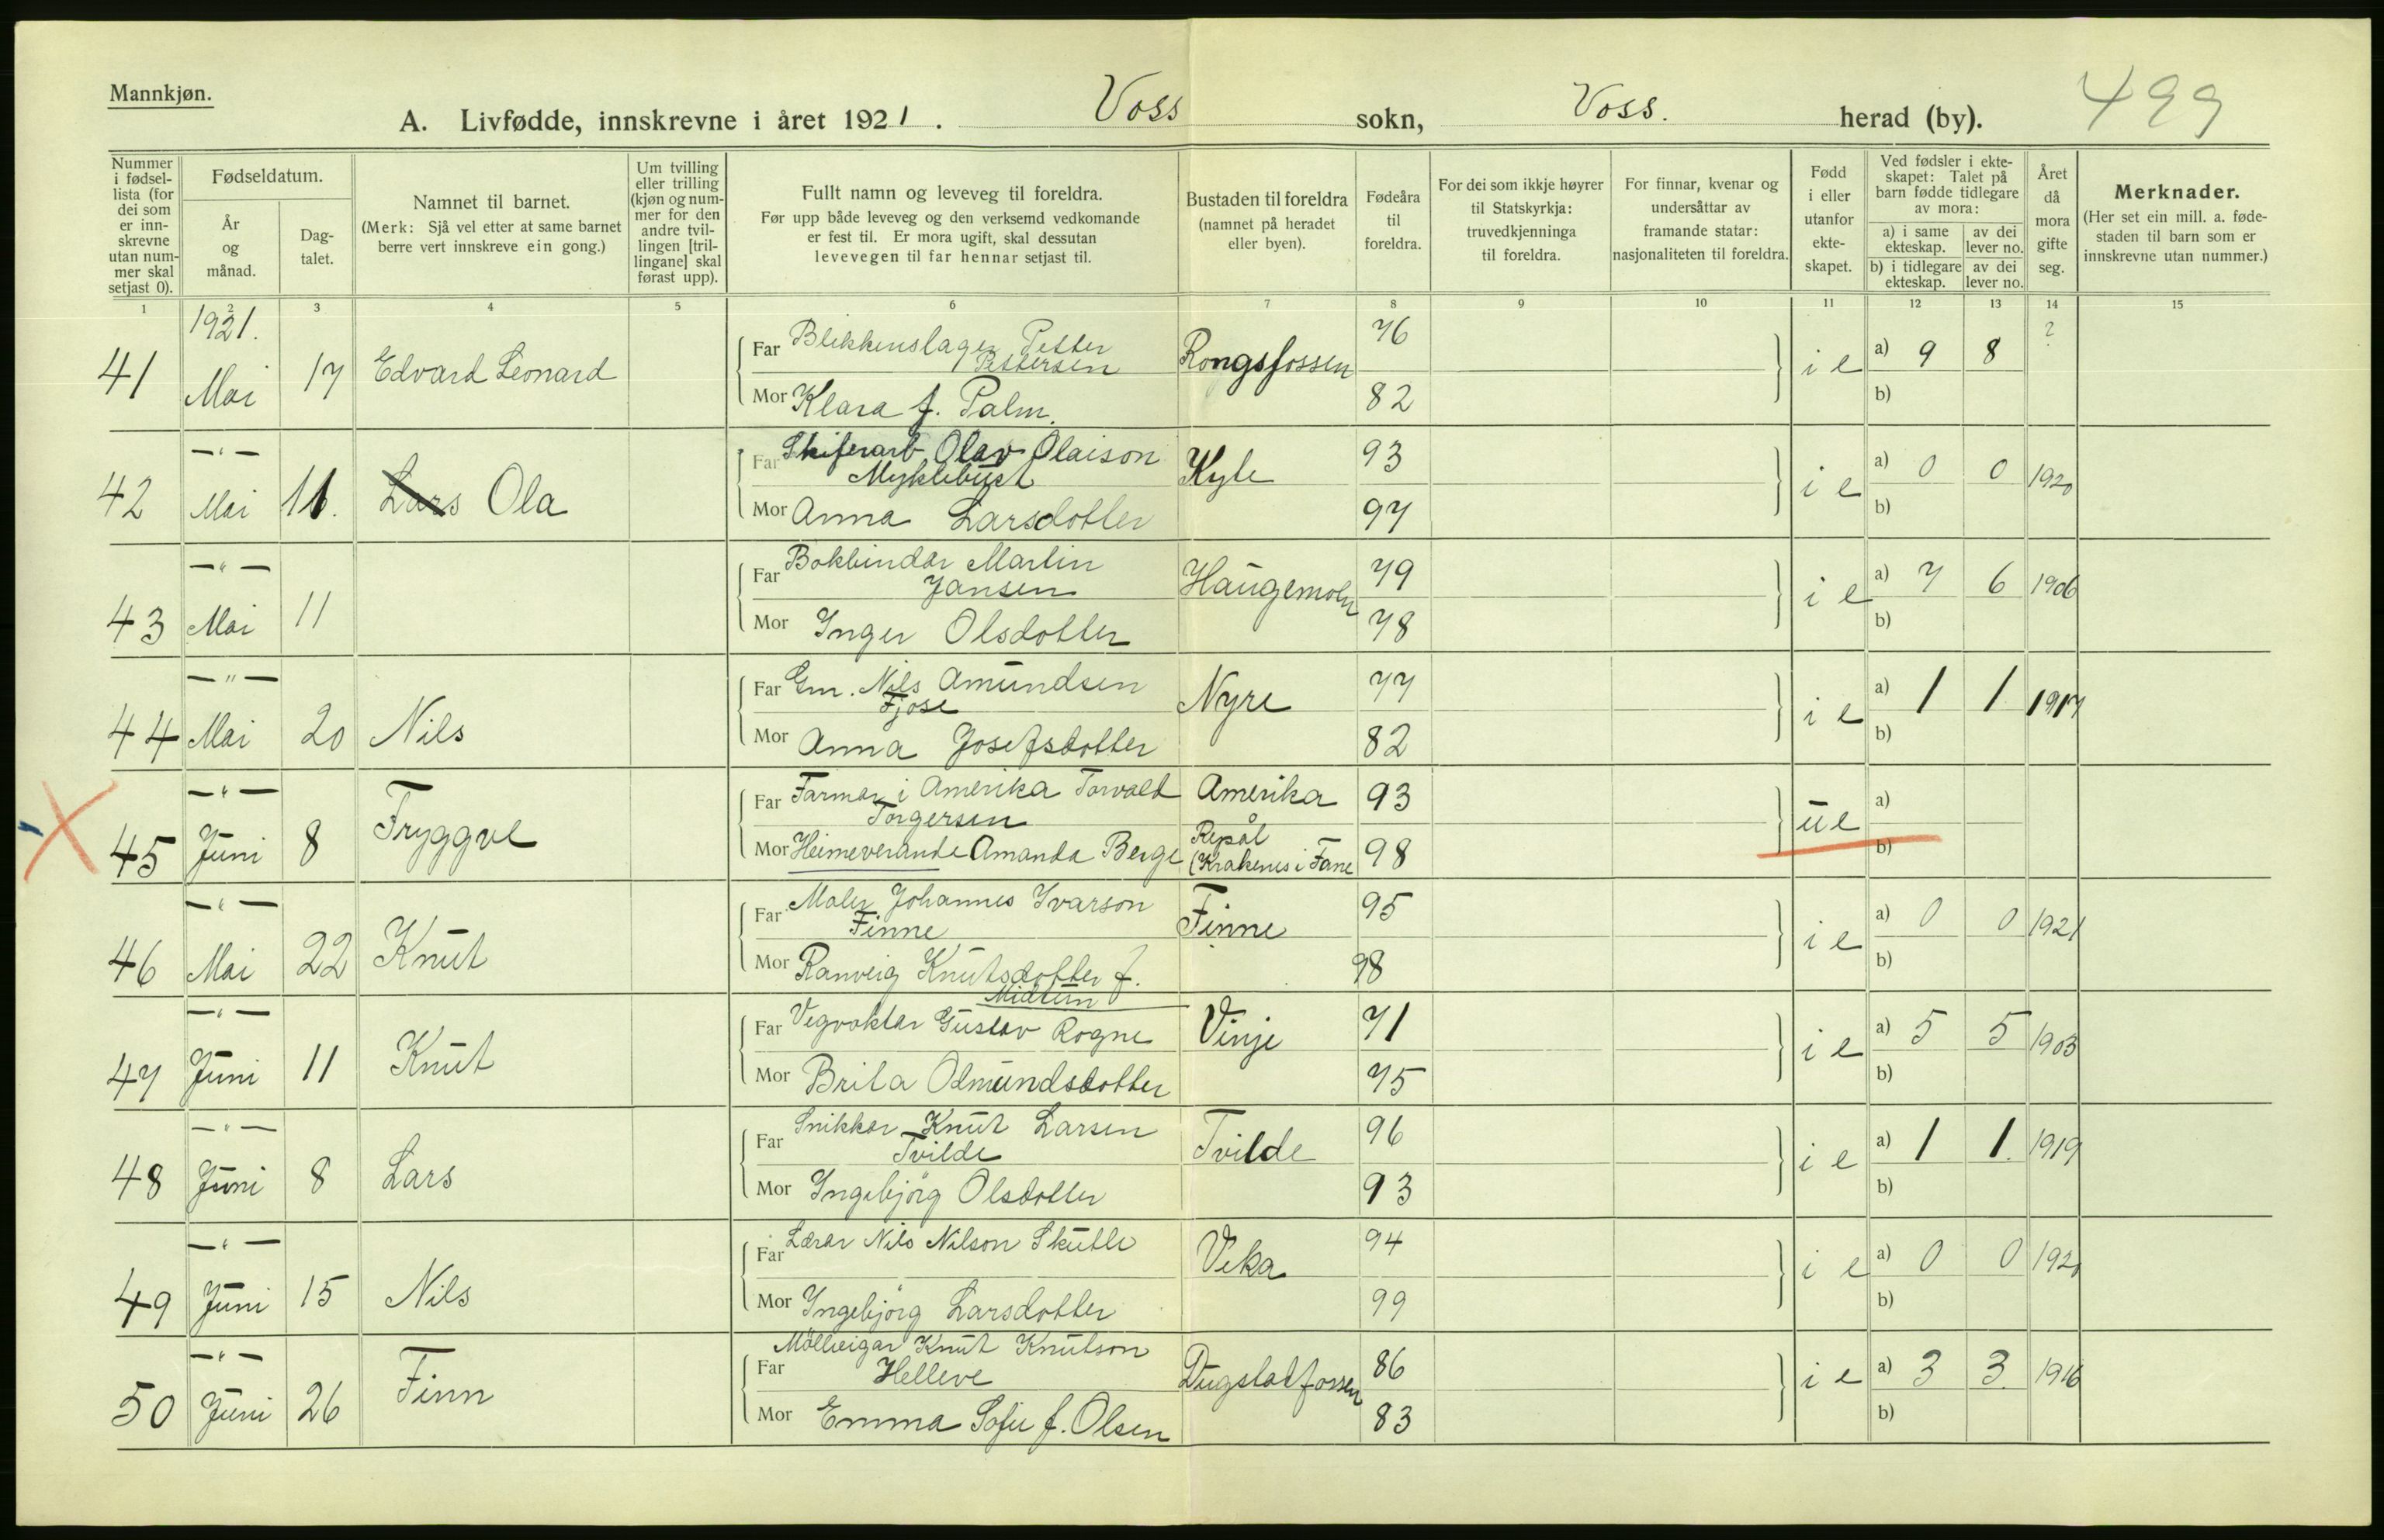 Mannkjøn.
A. Livfødde, innskrevne i året 1921. Voss sokn, Voss. herad (by). 499
Nummer i fødsel-lista (for dei som er inn-skrevne utan num-mer skal setjast 0).
Fødseldatum.
År og månad.
Dag-talet.
Namnet til barnet.
(Merk: Sjå vel etter at same barnet berre vert innskreve ein gong.)
Um tvilling eller trilling (kjøn og num-mer for den andre tvil-lingen [tril-lingane] skal førast upp).
Fullt namn og leveveg til foreldra.
Før upp både leveveg og den verksemd vedkomande er fest til. Er mora ugift, skal dessutan levevegen til far hennar setjast til.
Bustaden til foreldra
(namnet på heradet eller byen).
Fødeåra til foreldra.
For dei som ikkje høyrer til Statskyrkja: truvedkjenninga til foreldra.
For finnar, kvenar og undersåttar av framande statar: nasjonaliteten til foreldra.
Fødd i eller utanfor ekte-skapet.
Ved fødsler i ekte-skapet: Talet på barn fødde tidlegare av mora:
a) i same ekteskap.
av dei lever no.
b) i tidlegare ekteskap.
av dei lever no.
Året då mora gifte seg.
Merknader.
(Her set ein mill. a. føde-staden til barn som er innskrevne utan nummer.)
1 2 3 4 5 6 7 8 9 10 11 12 13 14 15
1921.
41 Mai 17 Edvard Leonard
Far Blikkenslager Petter
Pettersen
Rongsfossen 76 i e a) 9 8 ?
Mor Klara f. Palm. 82 b)
— " —
42 Mai 11. Lars Ola
Far Skiferarb Olav Olaison
Myklebust
Kyte 93 i e a) 0 0 1920
Mor Anna Larsdotter 97 b)
— " —
43 Mai 11
Far Bokbindar Martin
Jansen
Haugemoen 79 i e a) 7 6 1906
Mor Inger Olsdotter 78 b)
— " —
44 Mai 20 Nils
Far Gm. Nils Amundsen
Fjose
Nyre 77 i e a) 1 1 1917
Mor Anna Josefsdotter 82 b)
— " —
45 Juni 8 Tryggve
Far Farmar i Amerika Torvald
Torgersen
Amerika 93 ue a)
Mor Heimeverande Amanda Berge
Repål
(Krakenes i Fane 98 b)
— " —
46 Mai 22 Knut
Far Maler Johannes Ivarson
Finne
Finne 95 i e a) 0 0 1921
Mor Ranveig Knutsdotter f.
Midtun
98 b)
— " —
47 Juni 11 Knut
Far Vegvoktar Gustav Rogne
Vinje 71 i e a) 5 5 1903
Mor Brita Odmundsdotter 75 b)
— " —
48 Juni 8 Lars
Far Snikkar Knut Larsen
Tvilde
Tvilde 96 i e a) 1 1. 1919
Mor Ingebjörg Olsdotter 93 b)
— " —
49 Juni 15 Nils
Far Lærar Nils Nilson Skutle
Veka 94 i e a) 0 0
Mor Ingebjörg Larsdotter 99 b)
— " —
50 Juni 26 Finn
Far Mölleeigar Knut Knutson
Helleve
Dugstadfossen 86 i e a) 3 3. 1916
Mor Emma Sofie f. Olsen 83 b)